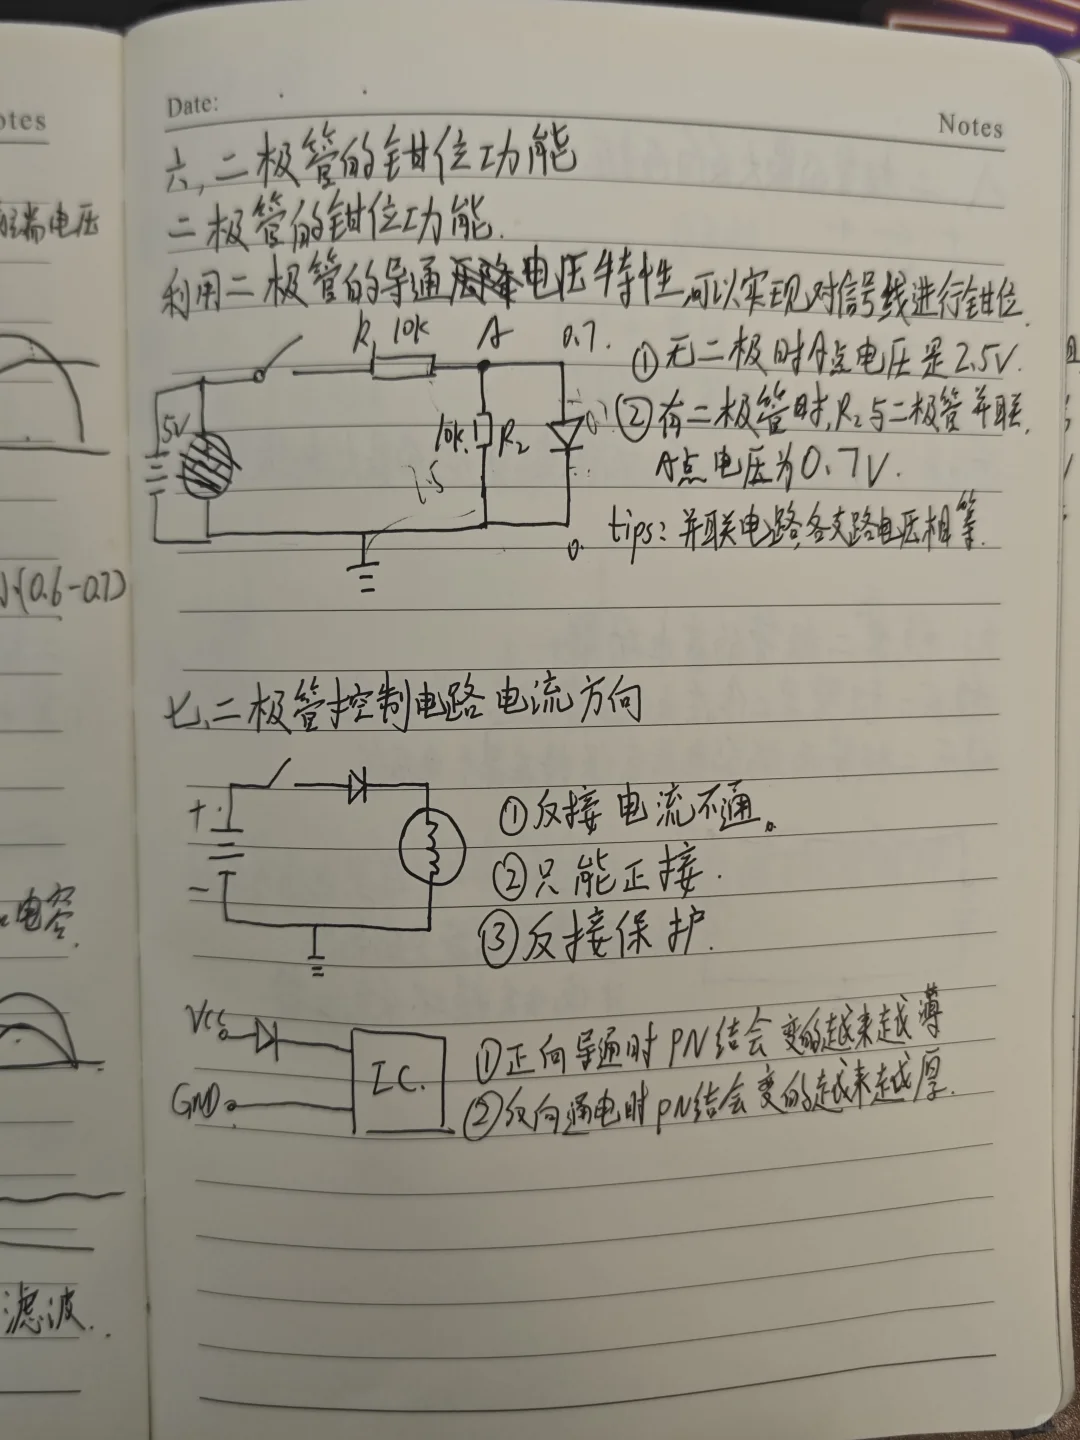 otes
端电压
(0.6-0.7)
电容
滤波..
Date:
Notes
六,二极管的钳位功能
二极管的钳位功能.
利用二极管的导通电压特性,可以实现对信号线进行钳位.
R, 10k A 0.7.
5V
10k. R2
0.
①无二极时A点电压是2.5V.
②有二极管时,R2与二极管并联,
A点电压为0.7V.
tips:并联电路,各支路电压相等.
七、二极管控制电路电流方向
+
-
①反接电流不通。
②只能正接.
③反接保护.
Vcc
GND
IC.
①正向导通时PN结会变的越来越薄
②反向通电时PN结会变的越来越厚.